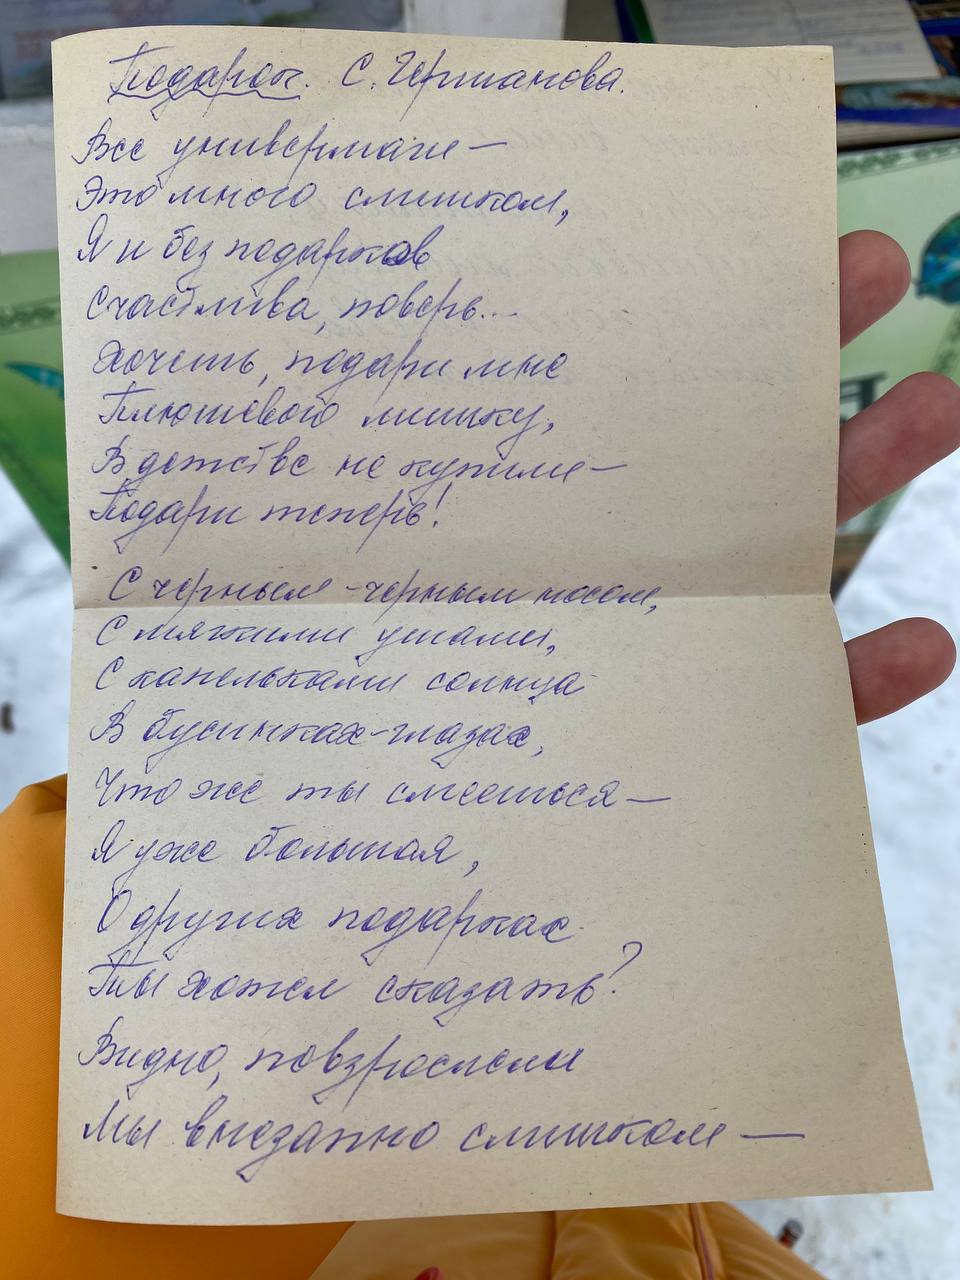 Подарок. С. Германова.
Все универмаги —
Это много слишком,
Я и без подарков
Счастлива, поверь...
Хочешь, подари мне
Плюшевого мишку,
В детстве не купили —
Подари теперь!
С черным-черным носом,
С мягкими ушами,
С капельками солнца
В бусинках-глазах,
Что же ты смеешься —
Я уже большая,
О других подарках
Ты хотел сказать?
Видно, повзрослели
Мы внезапно слишком —